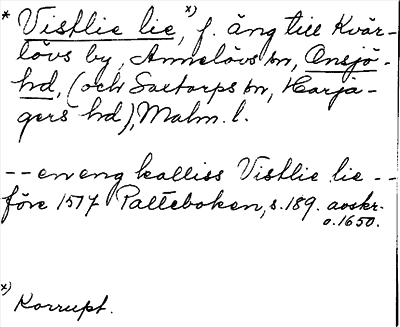 * Vistlie lie, x) f. äng till Kvär-
lövs by, Annelövs sn, Onsjö-
hd, (och Saxtorps sn, Harja-
gers hd), Malm. l.
-- en eng kalliss Vistlie lie --
före 1517 Palteboken, s. 189. avskr.
o. 1650.
x) Korrupt.